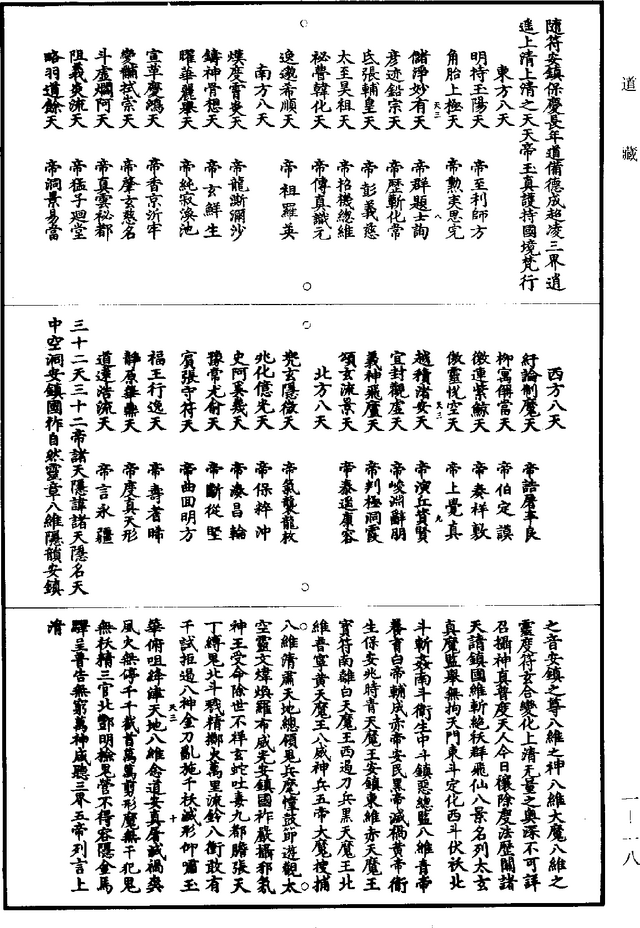 道藏
隨符安鎮保慶長年道備德成超凌三界逍
遙上清上清之天天帝玉真護持國境梵行
東方八天
明持玉陽天 帝至利師方
角胎上極天 帝勳夷思完
儲淨妙有天 帝群題士詢
彦迹鉛宗天 帝歷斬化常
氐張輔皇天 帝彭義慈
太至昊祖天 帝招機總維
祕瞢韓化天 帝傳真識元
逸邈希順天 帝祖羅英
南方八天
煥度霄炎天 帝龍澌瀰沙
鑄神骨想天 帝玄鮮生
曜華麗舉天 帝純寂渙池
宣革慶鴻天 帝香京沂牢
變黼拭崇天 帝肇玄慈名
斗虛爛阿天 帝真雲祕都
阻義炎流天 帝猛子廻堂
略羽道餘天 帝洞景易當
西方八天
紆論制魔天 帝誥屠車良
柳寓儛當天 帝伯定謨
微連紫鯨天 帝奏祥敷
儌靈恍空天 帝上覺真
越積渚安天 帝演丘貲賢
宜封觀虛天 帝峻淵辭朋
義神飛廬天 帝判極洞霞
頌玄流景天 帝泰遥康容
北方八天
兜玄隱微天 帝氣襲龍枚
兆化億光天 帝保粹沖
史阿莫幾天 帝湊昌輪
豫常尤俞天 帝斷從堅
賓張守符天 帝曲面明方
福王行逸天 帝壽著晞
靜原華樂天 帝度真天形
道達浩流天 帝言永疆
三十二天三十二帝諸天隱諱諸天隱名天
中空洞安鎮國祚自然靈章八維隱韻安鎮
之音安鎮之尊八維之神八維大魔八維之
靈度符玄合變化上清无量之奧深不可詳
召攝神真普度天人今日禳除度法歷關諸
天請鎮國維斬絕袄群飛仙八景名列太玄
真魔監舉無拘天門東斗定化西斗伏袄北
斗斬姦南斗衛生中斗鎮惡總監八維青帝
養育白帝輔成赤帝安民黑帝滅禍黃帝衛
生保安兆時青天魔王安鎮東維赤天魔王
寶符南離白天魔王西過刀兵黑天魔王北
維普寧黃天魔王八威神兵五帝大魔搜捕
八維清肅天地總領鬼兵麾幢鼓節遊觀太
空靈文煒煥羅布威光安鎮國祚嚴攝邪氣
神王受命除世不祥玄蛇吐毒九都膽張天
丁縛鬼北斗戮精擲火萬里流鈴八衝敢有
千試拒過八神金刀亂施千袄滅形仰嘯玉
華俯咀絳緯天地八維念道安真屠滅禍與
風火無停千千截首萬萬剪形魔無干犯鬼
無袄精三官北酆明檢鬼營不得容隱金馬
驛呈普告無窮萬神咸聽三界五帝列言上
清
天三 八
天三 九
天三 十
一一一八